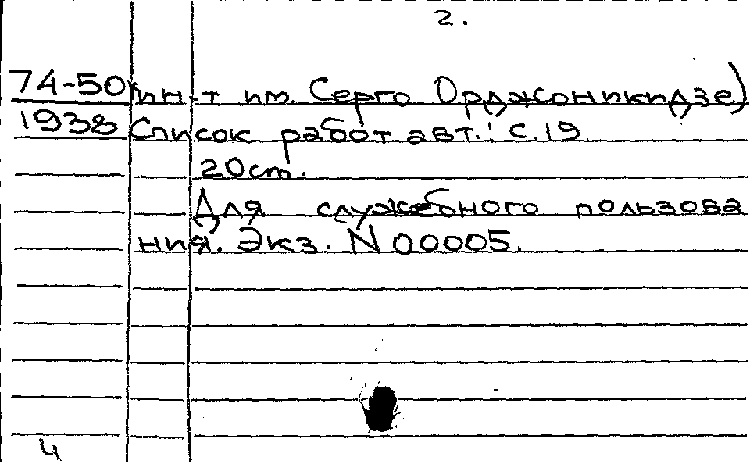 2.
74-50 ин-т им. Серго Орджоникидзе)
1938 Список работ авт.: с.19
20 ст.
Для служебного пользова
ния. Экз. N 00005.
4